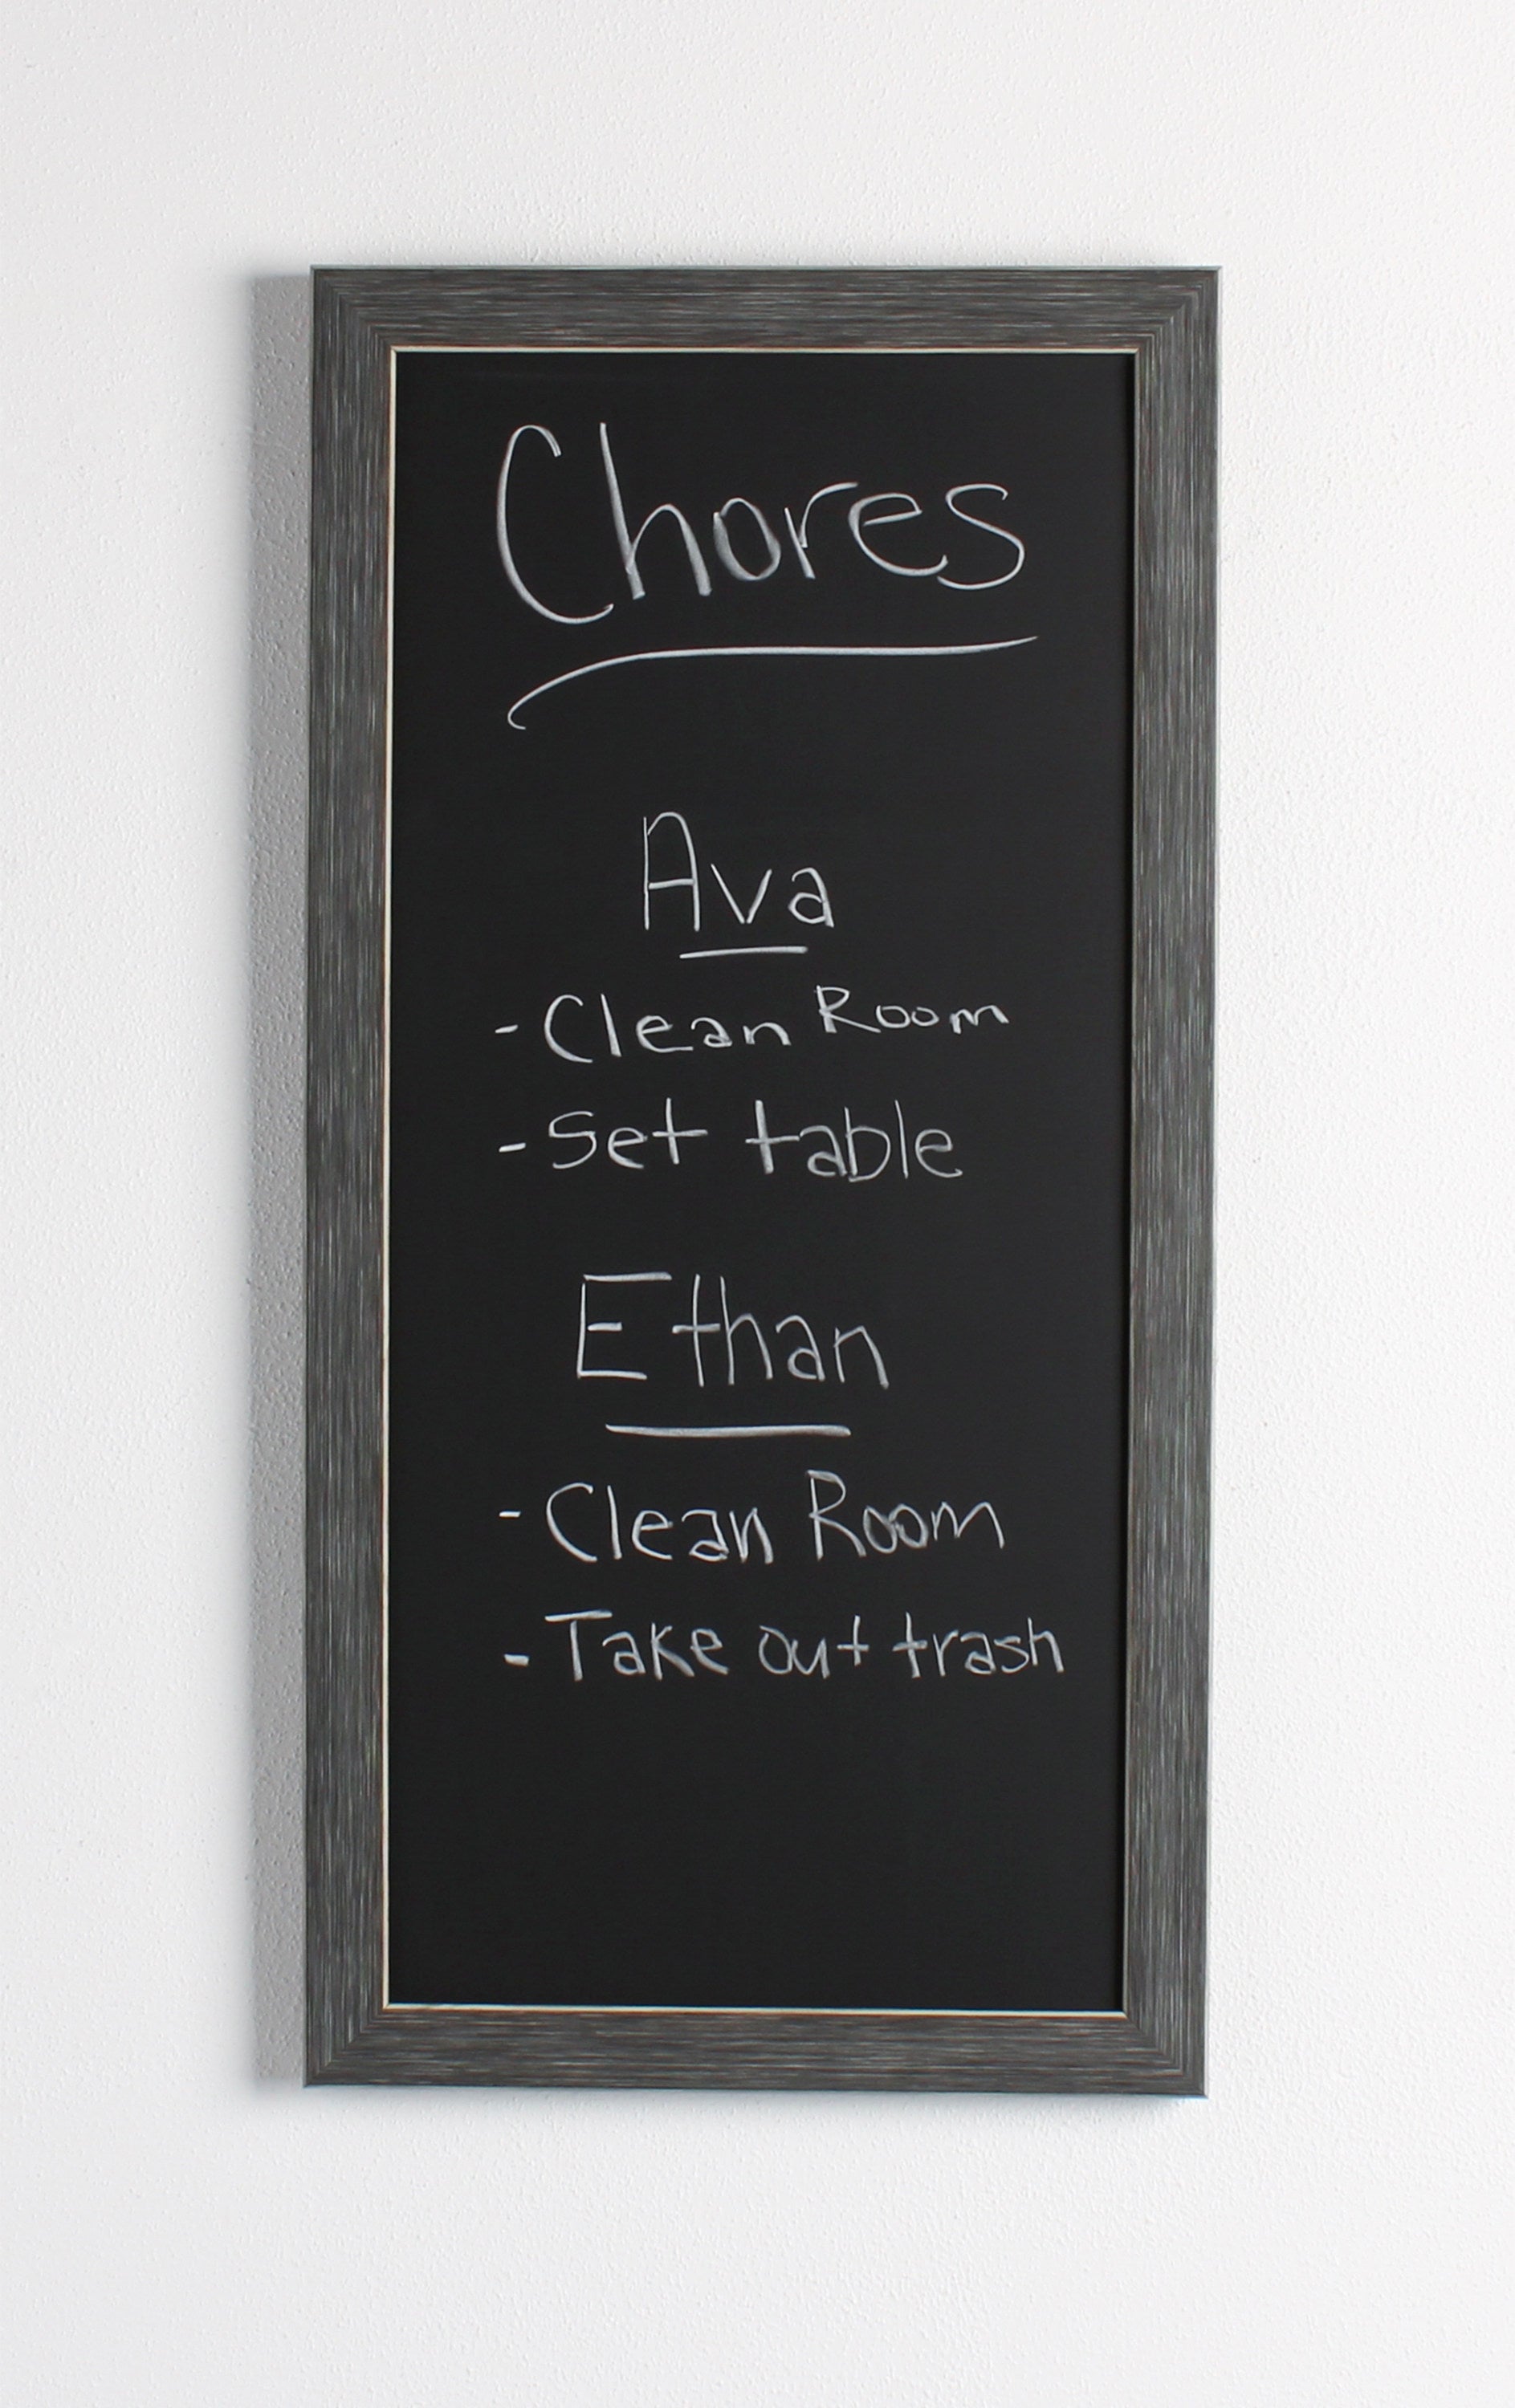 Chores
Ava
- Clean Room
- Set table
Ethan
- Clean Room
- Take out trash